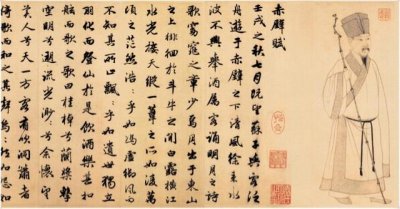 赤壁賦
壬戌之秋七月既望蘇子與客泛
舟遊于赤壁之下清風徐來水
波不興舉酒屬客誦明月之詩
歌窈窕之章少焉月出於東山
之上徘徊於斗牛之間白露橫江
水光接天縱一葦之所如凌萬
頃之茫然浩浩乎如馮虛御風而
不知其所止飄飄乎如遺世獨立
羽化而登仙於是飲酒樂甚扣
舷而歌之歌曰桂棹兮蘭槳擊
空明兮泝流光渺渺兮余懷望
美人兮天一方客有吹洞簫者
倚歌而和之其聲嗚嗚然如怨如